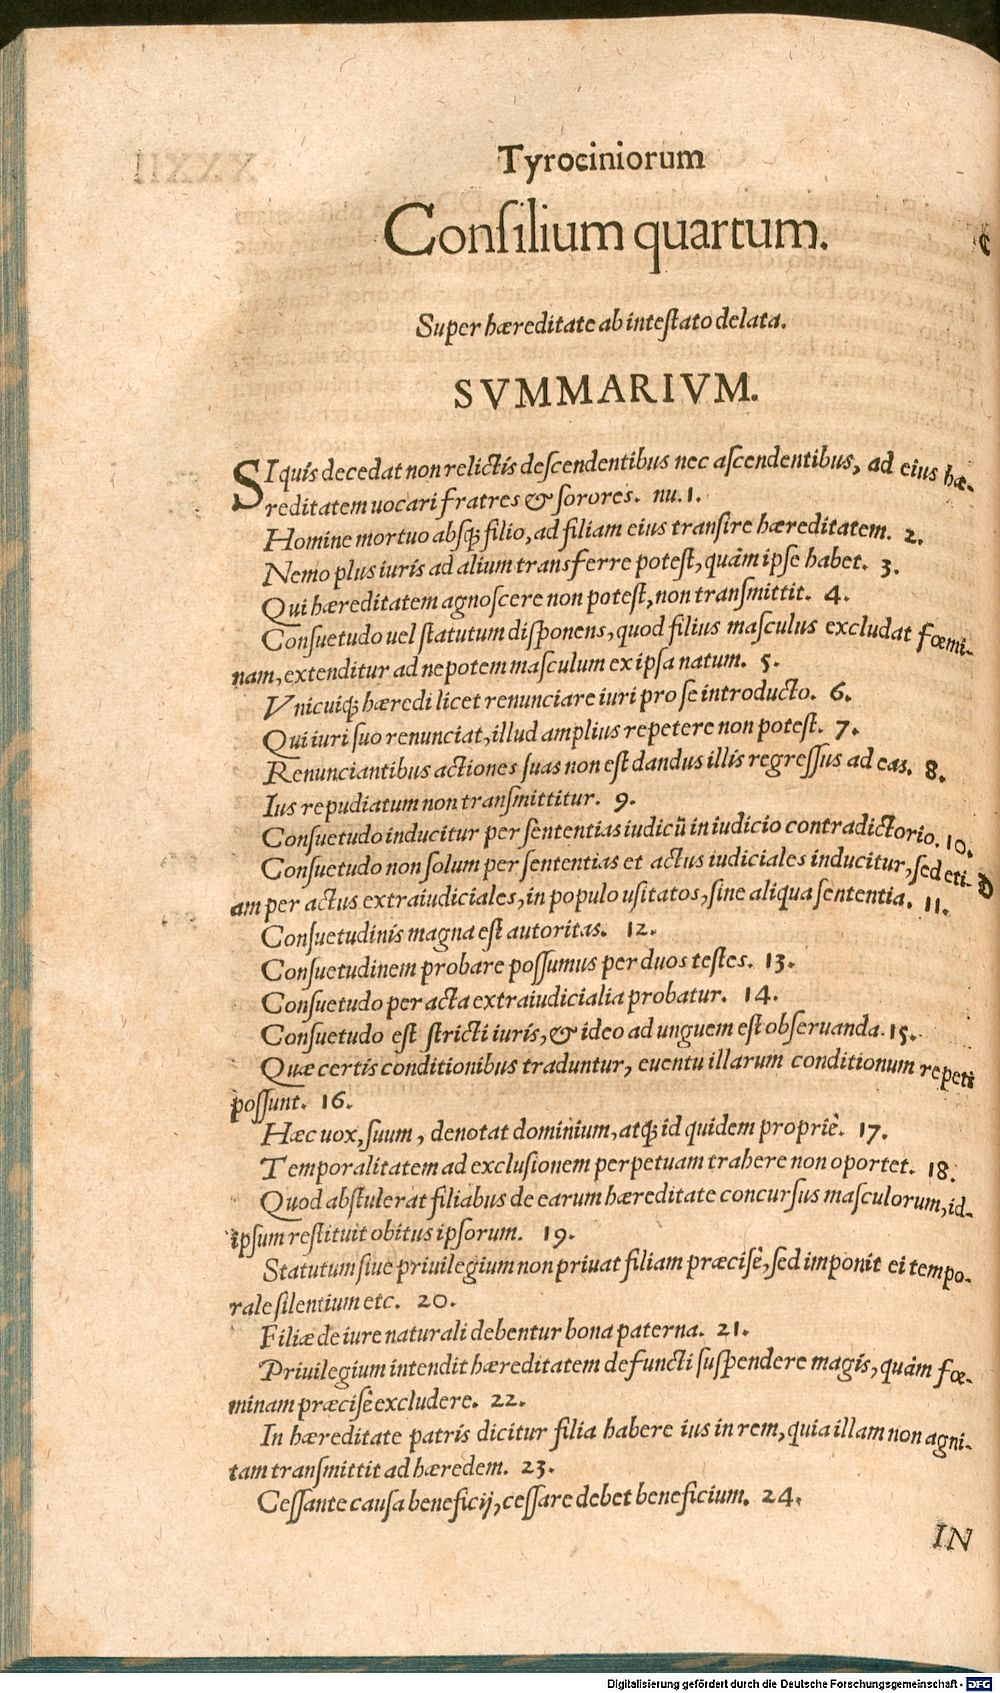 Tyrociniorum
Conſilium quartum.
C
Super hæreditate ab inteſtato delata.
SVMMARIVM.
SI quis decedat non relictis deſcendentibus nec aſcendentibus, ad eius hæ-
reditatem uocari fratres & ſorores. nu. 1.
Homine mortuo abſq; filio, ad filiam eius tranſire hæreditatem. 2.
Nemo plus iuris ad alium transferre poteſt, quàm ipſe habet. 3.
Qui hæreditatem agnoſcere non poteſt, non tranſmittit. 4.
Conſuetudo uel ſtatutum diſponens, quod filius maſculus excludat fœmi-
nam, extenditur ad nepotem maſculum ex ipſa natum. 5.
Vnicuiq; hæredi licet renunciare iuri pro ſe introducto. 6.
Qui iuri ſuo renunciat, illud amplius repetere non poteſt. 7.
Renunciantibus actiones ſuas non eſt dandus illis regreſſus ad eas. 8.
Ius repudiatum non tranſmittitur. 9.
Conſuetudo inducitur per ſententias iudicũ in iudicio contradictorio. 10.
Conſuetudo non ſolum per ſententias et actus iudiciales inducitur, ſed eti- D
am per actus extraiudiciales, in populo uſitatos, ſine aliqua ſententia. 11.
Conſuetudinis magna eſt autoritas. 12.
Conſuetudinem probare poſſumus per duos teſtes. 13.
Conſuetudo per acta extraiudicialia probatur. 14.
Conſuetudo eſt ſtricti iuris, & ideo ad unguem eſt obſeruanda. 15.
Quæ certis conditionibus traduntur, euentu illarum conditionum repeti
poſſunt. 16.
Hæc uox, ſuum, denotat dominium, atq; id quidem propriè. 17.
Temporalitatem ad excluſionem perpetuam trahere non oportet. 18.
Quod abſtulerat filiabus de earum hæreditate concurſus maſculorum, id-
ipſum reſtituit obitus ipſorum. 19.
Statutum ſiue priuilegium non priuat filiam præciſè, ſed imponit ei tempo-
rale ſilentium etc. 20.
Filiæ de iure naturali debentur bona paterna. 21.
Priuilegium intendit hæreditatem defuncti ſuſpendere magis, quàm fœ-
minam præciſè excludere. 22.
In hæreditate patris dicitur filia habere ius in rem, quia illam non agni-
tam tranſmittit ad hæredem. 23.
Ceſſante cauſa beneficij, ceſſare debet beneficium. 24.
IN
Digitalisierung gefördert durch die Deutsche Forschungsgemeinschaft - DFG